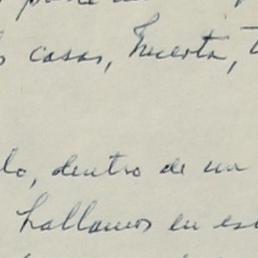 casas, huerta,
lo, dentro de un
hallamos en es